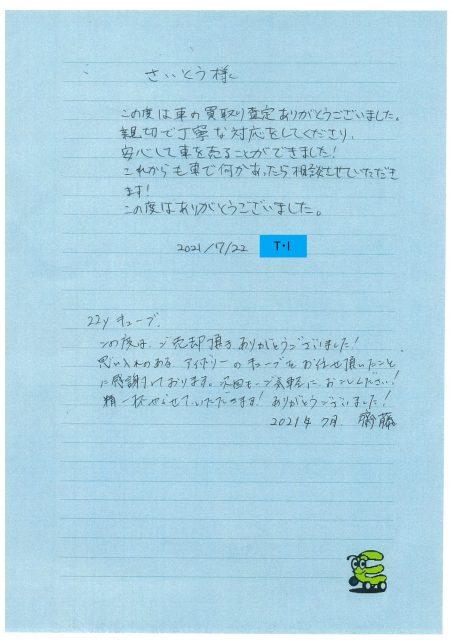 さいとう様
この度は車の買取り査定ありがとうございました。
親切で丁寧な対応をしてくださり、
安心して車を売ることができました!
これからも車で何かあったら相談させていただき
ます!
この度はありがとうございました。
2021/7/22 T・I
22y キューブ.
この度は、ご売却頂き ありがとうございました!
思い入れのある アイボリーの キューブを お任せ頂いたこと
に感謝しております。次回も、ご気軽に、お越しください!
精一杯やらせていただきます! ありがとうございました!
2021年7月. 齋藤